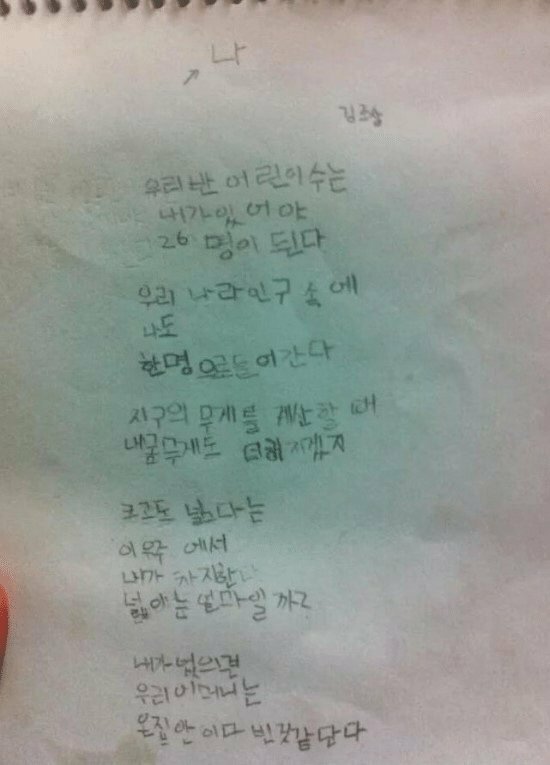 나
김조상
우리반 어린이수는
내가있어야
26명이 된다
우리 나라인구 속에
나도
한명으로들어간다
지구의 무게를 계산할 때
내몸무게도 더해지겠지
크고도 넓다는
이우주 에서
내가 차지한다
넓이는 얼마일까?
내가없의면
우리어머니는
온집안이다 빈것같단다